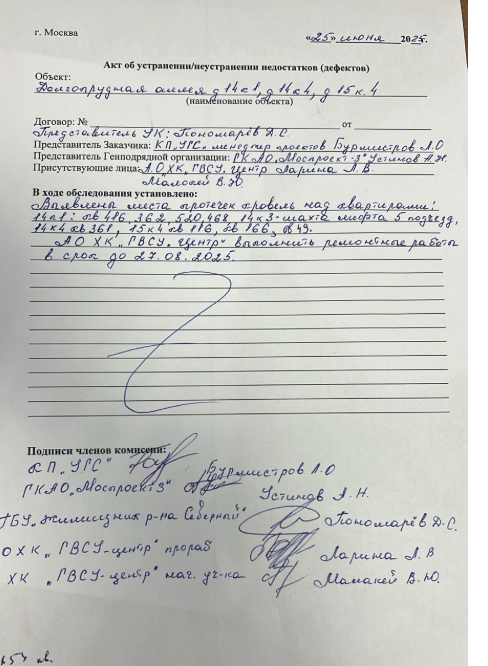 г. Москва «25» июня 2025г.
Акт об устранении/неустранении недостатков (дефектов)
Объект:
Долгопрудная аллея д 14к1, д 14к4, д 15к.4
(наименование объекта)
Договор: № от
Представитель УК: Пономарёв Д.С.
Представитель Заказчика: КП „УГС" менеджер проектов Бурмистров Л.О
Представитель Генподрядной организации: ГКАО „Моспроект-3" Устинов А.Н.
Присутствующие лица: АО ХК „ГВСУ" Центр Ларина Л.В.
Мамакей В.Ю.
В ходе обследования установлено:
Выявлены места протечек кровель над квартирами:
14к1: кв 416, 362, 520, 468 14к3-шахта лифта 5 подъезд,
14к4 кв 361, 15к4 кв 116, кв 166, кв 49.
АО ХК „ГВСУ „Центр" выполнить ремонтные работы
в срок до 27.08.2025.
Подписи членов комиссии:
КП „УГС" Бурмистров Л.О
ГКАО „Моспроект3" Устинов А.Н.
ГБУ „Жилищник р-на Северный" Пономарёв Д.С.
ОХК „ГВСУ-центр" прораб Ларина Л.В
ХК „ГВСУ-центр" нач. уч-ка Мамакей В.Ю.
кв.